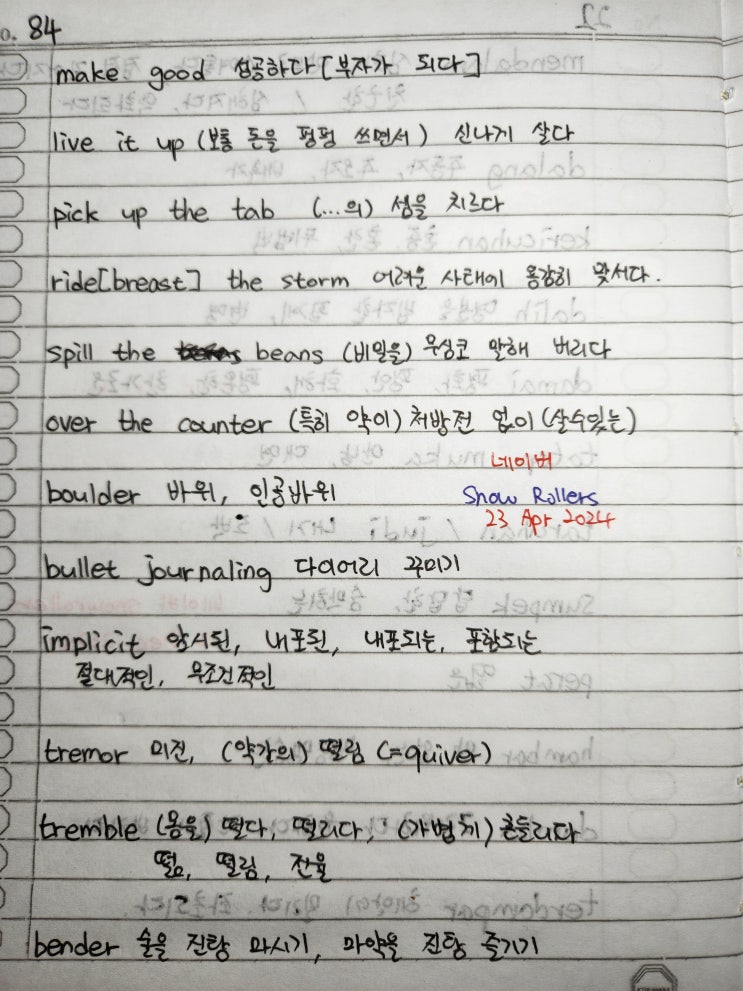 No. 84
make good 성공하다 [부자가 되다]
live it up (보통 돈을 펑펑 쓰면서) 신나게 살다
pick up the tab (...의) 셈을 치르다
ride[breast] the storm 어려운 사태에 용감히 맞서다.
spill the beans (비밀을) 무심코 말해 버리다
over the counter (특히 약이) 처방전 없이 (살수있는)
네이버
boulder 바위, 인공바위 Snow Rollers
23 Apr 2024
bullet journaling 다이어리 꾸미기
implicit 암시된, 내포된, 내포되는, 포함되는
절대적인, 무조건적인
tremor 미진, (약간의) 떨림 (=quiver)
tremble (몸을) 떨다, 떨리다, (가볍게) 흔들리다
떪, 떨림, 전율
bender 술을 진탕 마시기, 마약을 진탕 즐기기